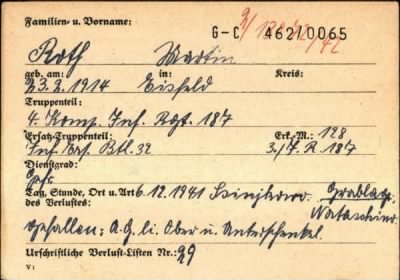 Familien- u. Vorname:
G-C 462/0065
Roth Martin
geb. am: in: Kreis:
23.2.1914 Eisfeld
Truppenteil:
4. Komp. Inf. Rgt. 187
Ersatz-Truppenteil: Erk.-M.: 128
Inf. Ers. Btl. 32 3./I. R. 187
Dienstgrad:
Gefr.
Tag, Stunde, Ort u. Art 6.12.1941 Grablage
des Verlustes:
Gefallen: A.G. li. Ober u. Unterschenkel.
Urschriftliche Verlust-Listen Nr.: 29
V1